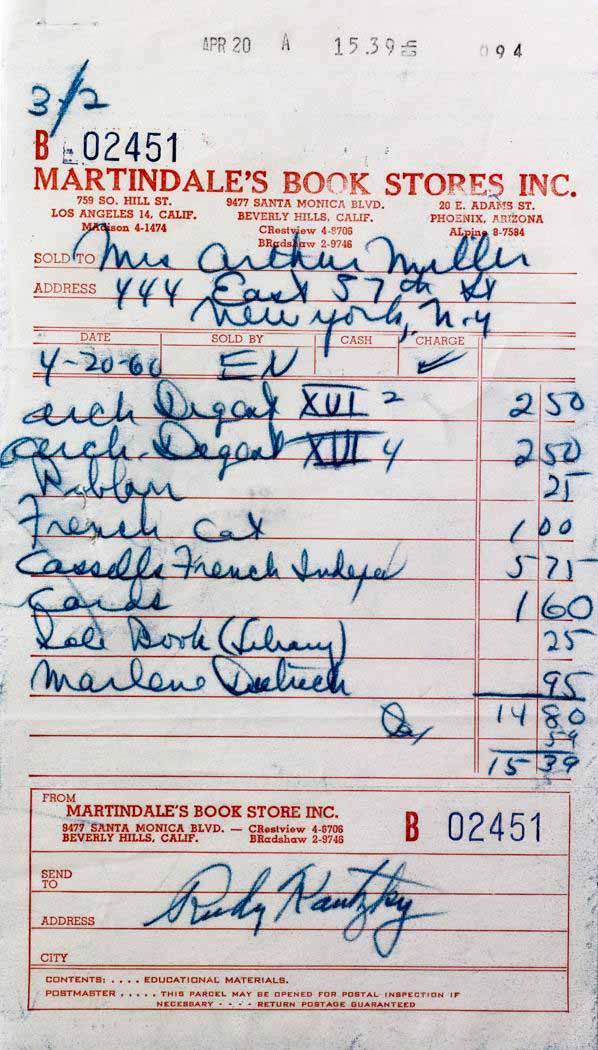 APR 20 A 15.39 094
3/2
B 02451
MARTINDALE'S BOOK STORES INC.
759 SO. HILL ST. 9477 SANTA MONICA BLVD. 20 E. ADAMS ST.
LOS ANGELES 14, CALIF. BEVERLY HILLS, CALIF. PHOENIX, ARIZONA
MAdison 4-1474 CRestview 4-8706 ALpine 8-7584
BRadshaw 2-9746
SOLD TO Mrs Arthur Miller
ADDRESS 444 East 57th St
New York, N.Y
DATE SOLD BY CASH CHARGE
4-20-60 EN ✓
arch Digest XVI 2 2 50
arch. Digest XVII 4 2 50
25
French Cat 1 00
Cassells French 5 75
Cards 1 60
Book (Library) 25
Marlene Dietrich 95
14 80
Tax 59
15 39
FROM
MARTINDALE'S BOOK STORE INC.
9477 SANTA MONICA BLVD. — CRestview 4-8706 B 02451
BEVERLY HILLS, CALIF. BRadshaw 2-9746
SEND
TO
ADDRESS Rudy Kautzky
CITY
CONTENTS: . . . . EDUCATIONAL MATERIALS.
POSTMASTER . . . . . THIS PARCEL MAY BE OPENED FOR POSTAL INSPECTION IF
NECESSARY - - - - RETURN POSTAGE GUARANTEED